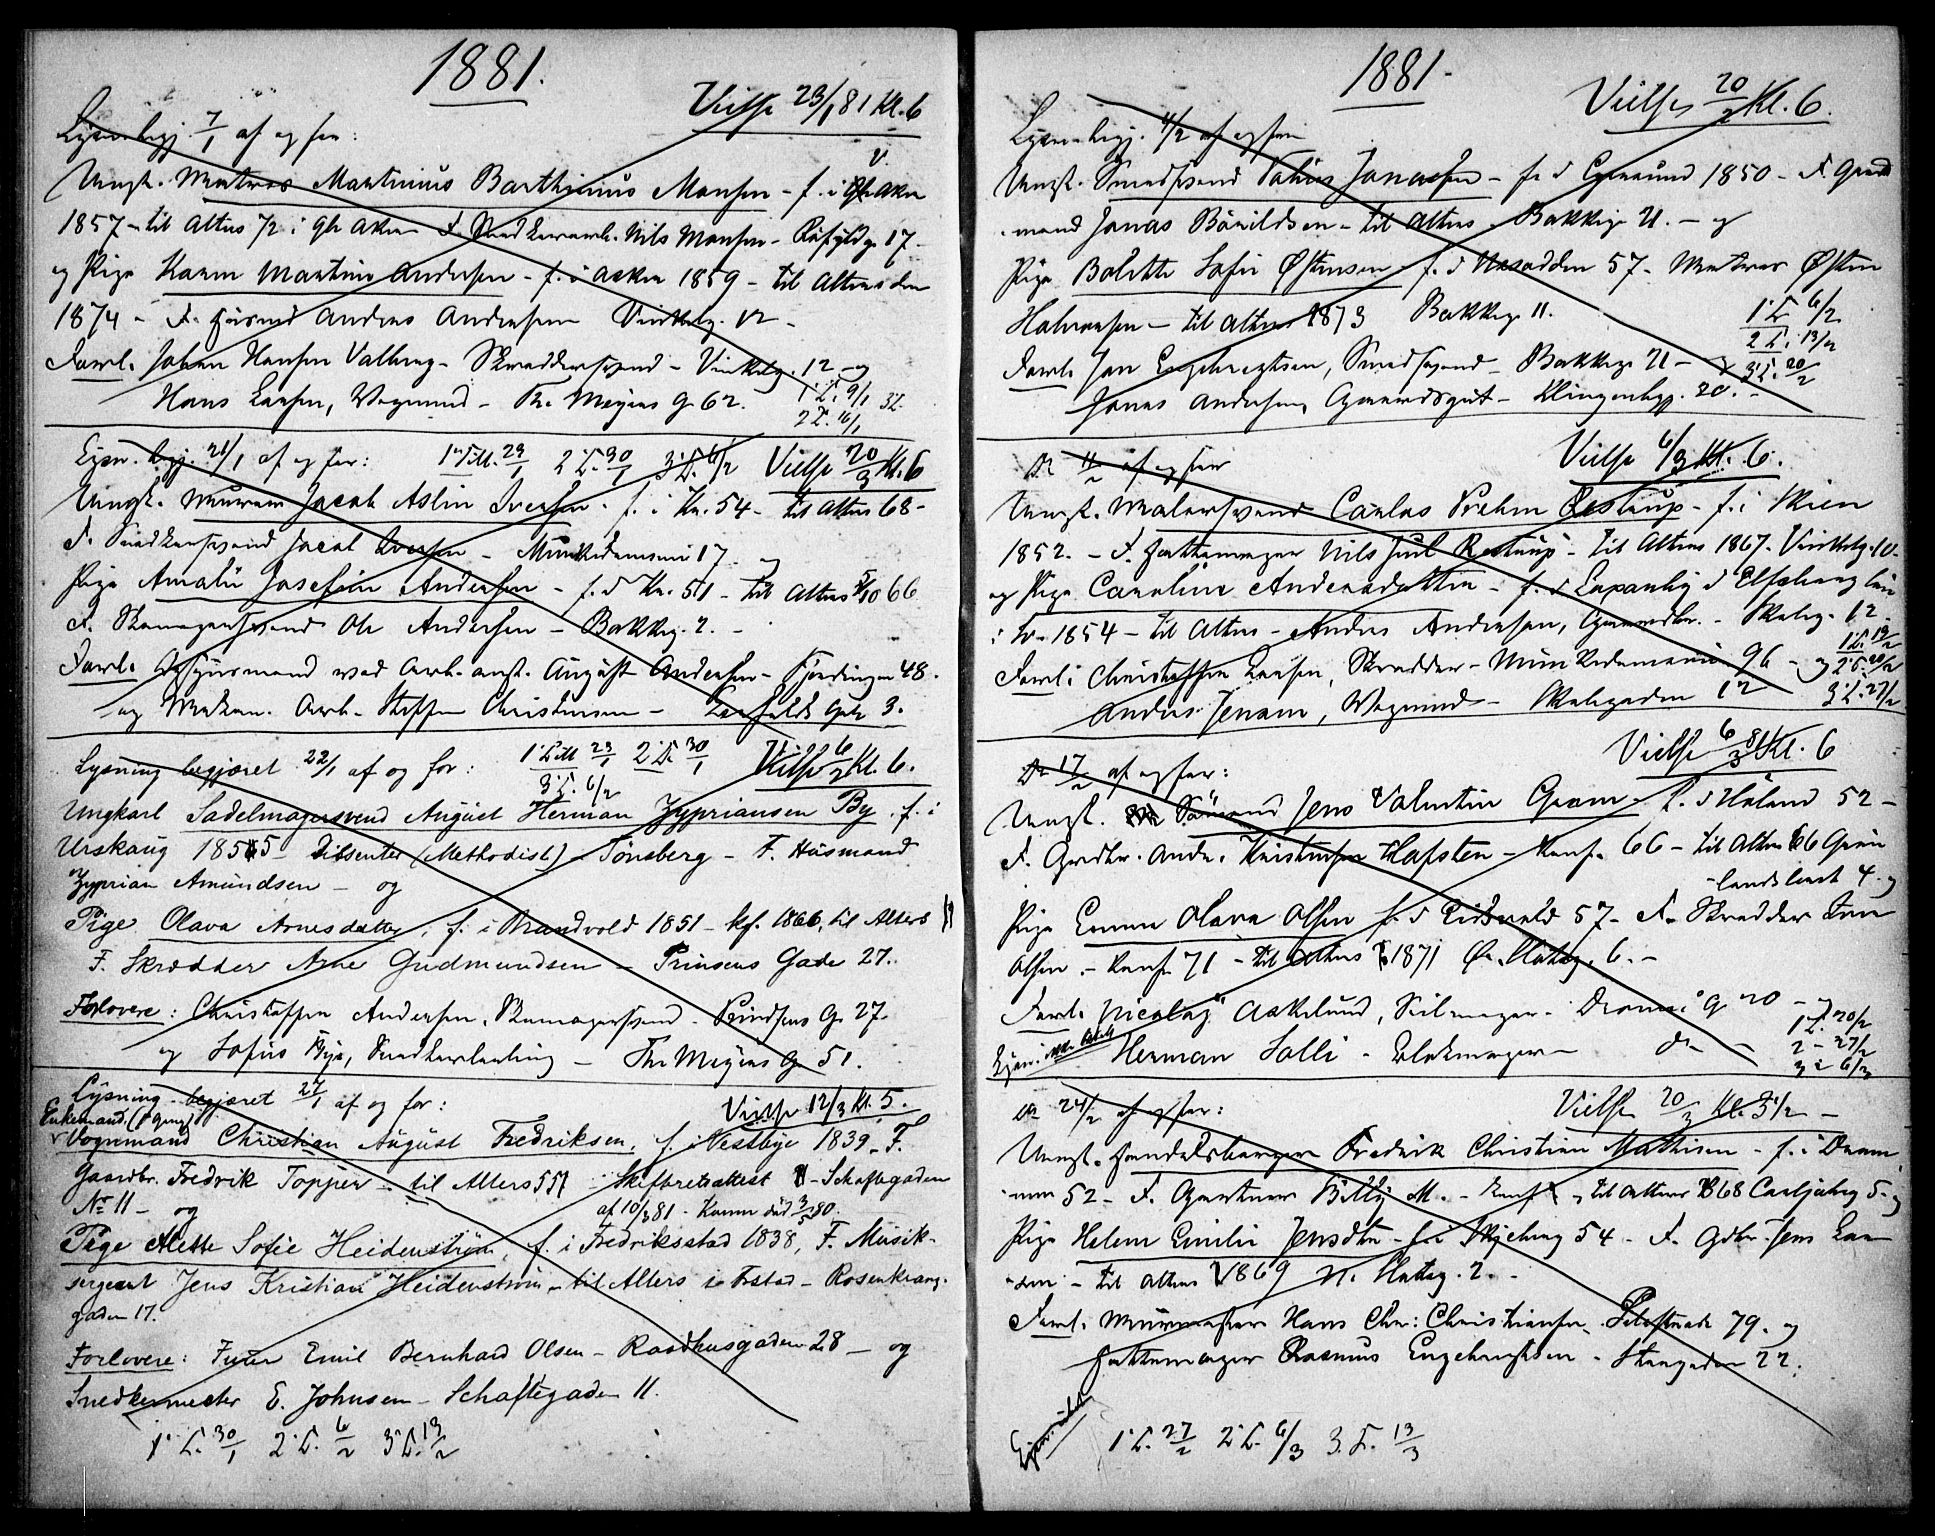 1881.
Vielse 23/1 81 Kl. 6
Lysn. begj. 7/1 af og for:
Ungk. Matros Martinius Barthinius Monsen - f. i V. Aker
1857 - til Alters 72 i Gl. Aker F. Snedkerarb. Nils Monsen - 17 -
og Pige Karen Martine Andersen - f. i Asker 1859 - til Alters
1874 - F. Husmd Anders Andersen Vinkelg. 12 -
Forl. Johan Hansen Valberg - Skreddersvend - Vinkelg. 12 - og
Hans Larsen, Vognmd - Th. Meyers g 62.
1' L. 9/1
2 L. 16/1
Lysn. begj. 21/1 af og for: 1' L. 23/1 2 L. 30/1 3' L. 6/2 Vielse 20/3 Kl. 6
Ungk. Murer Jacob Aslin Iversen - f. i Kr. 54 - til Alters 68 -
F. Snedkersvend Jacob Iversen - Munkedamsvei 17 og
Pige Amalie Josefine Andersen - f. i Kr. 51 - til Alters 5/10 66
F. Skomagersvend Ole Andersen - Bakkeg. 2. -
Forl. ved Arb. anst. August Andersen - Fjerdingen 48.
og Mekan. Arb. Steffen Christensen - 3.
Lysning begjæret 22/1 af og for: 1' L. 23/1 2' L. 30/1 Vielse 6/2 Kl. 6.
3' L. 6/2
Ungkarl Sadelmagersvend August Herman Zypriansen By - f. i
Urskoug 1855 - Dissenter (Methodist) - Tønsberg - F. Husmand
Zyprian Amundsen - og
Pige Olava Arnesdatter, f. i Brandvold 1851 - kf. 1866, til Alters
F. Skrædder Arne Gudmundsen - Prinsens Gade 27.
Forlovere: Christoffer Andersen, Skomagersvend - Prindsens G. 27.
og Sofus Bye, Snedkerlærling - Th. Meyers G. 51.
Lysning begjæret 27/1 af og for: Vielse 12/3 Kl. 5.
Enkemand (1 gang)
Vognmand Christian August Fredriksen, f. i Vestbye 1839, F.
Gaardbr. Fredrik Topper - til Alters 55 - Skifteretsattest - Schaftegaden
No 11 - og af 10/3 81 - Konen død 3/5 80.
Pige Mette Sofie Heidenstrøm, f. i Fredriksstad 1838, F. Musik-
sergeant Jens Kristian Heidenstrøm - til Alters i Frstad - Rosenkrang.
gaden 17.
Forlovere: Emil Bernhard Olsen - Raadhusgaden 28 - og
Snedkermester E. Johnsen - Schaftegaden 11.
1' L. 30/1 2' L. 6/2 3' L. 13/2
1881-
Vielse 20/2 Kl. 6.
Lysn. begj. 4/2 af og for
Ungk. Smedsvend Jonassen - f. i 1850 - F. Gaard
mand Jonas - til Alters - Bakkeg. 21. - og
Pige Bolette Sofie Østensen - f. i Nesodden 57 - Matros Østen
Halvorsen - til Alters 1873 Bakkeg 11.
1' L. 6/2
2 L. 13/2
3' L. 20/2
Forl. Jon Engebretsen, Smedsvend - Bakkeg 21 - og
Jonas Andersen, Gaardsgut - Klingenbgg. 20. -
Do 11/2 af og for Vielse 6/3 Kl. 6.
Ungk. Malersvend Carlos Prehm Restrup - f. i Skien
1852. - F. Hattemager Nils Juul Restrup - til Alters 1867. Vinkelg. 10 -
og Pige Caroline Andersdatter - f. i i Elfsborg län
i Sv. 1854 - til Alters - Anders Andersen, Gaardbr. - Skoleg. 12 -
1' L. 13/2
2' L. 20/2
3' L. 27/2
Forl: Christoffer Larsen, Skrædder - Munkedamsvei 96 - og
Anders Jensen, Vognmd - Skolegaden 12
Do 17/2 af og for: Vielse 6/3 81 Kl. 6
Ungk. Sømand Jens Valentin Gram - f. i Høland 52 -
F. Grdbr. Andr. Kristensen Hafsten - Konf. 66 - til Alters 66 Grøn
landsleret 4. og
Pige Emma Olava Olsen f. i Eidsvold 57 - F. Skrædder
Olsen - Konf 71 - til Alters 1871 Gr. Slotsg. 6. -
Forl. Nicolaj Askelund, Seilmager - Dronn. g 20 - og
Herman Solli - Blokmager - do -
1 L. 20/2
2 - 27/2
3 - 6/3
Do 24/2 af og for: Vielse 20/3 Kl. 5 1/2 -
Ungk. Handelsborger Fredrik Christian Mathisen - f. i Dram
men 52 - F. Gartner M. - Konf & til Alters 1868 Carljohang 5 - og
Pige Helene Emilie Jensdtr - f. i Skjeberg 54 - F. Gdbr. Jens Lar
sen - til Alters 1869 N. Slotsg. 2. -
Forl. Murmester Hans Chr: Christiansen - Pilestræde 79. og
Hattemager Rasmus Engebretsen - Storgaden 22.
1' L. 27/2 2' L. 6/3 3. L. 13/3